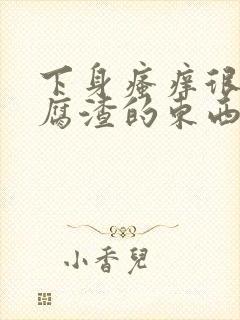 下身瘙痒很
腐渣的东西
小香兒